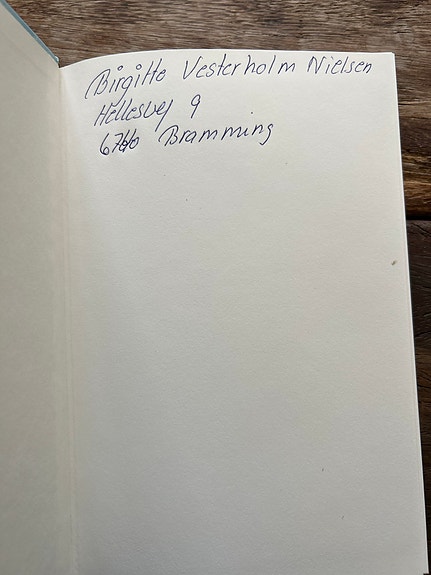 Birgitte Vesterholm Nielsen
Hellesvej 9
6740 Bramming